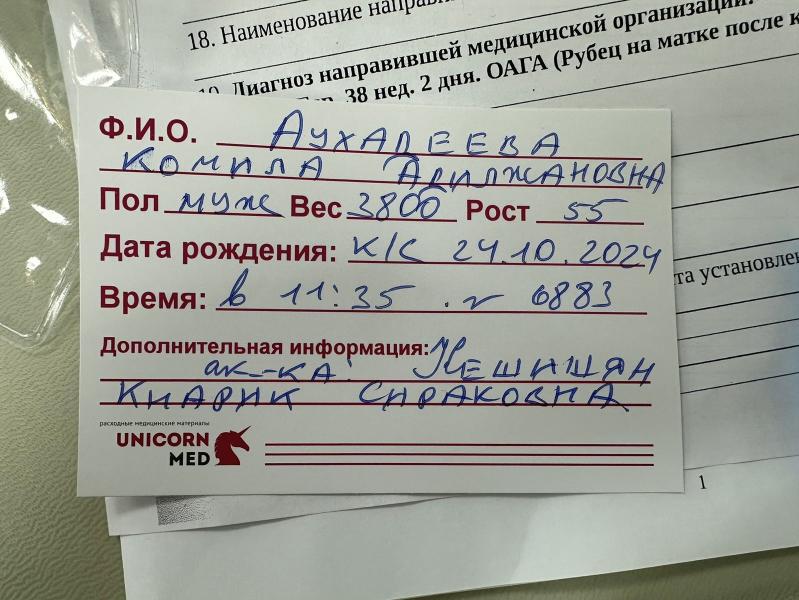 18. Наименование направи
Диагноз направившей медицинской организации:
38 нед. 2 дня. ОАГА (Рубец на матке после к
Ф.И.О. Аухадеева
Комила Адилжановна
Пол муж Вес 3800 Рост 55
Дата рождения: К/С 24.10.2024
та установлен
Время: в 11:35 . N 6883
Дополнительная информация: Нешишян
ак-ка:
Кнарик Сираковна
расходные медицинские материалы
UNICORN
MED
1